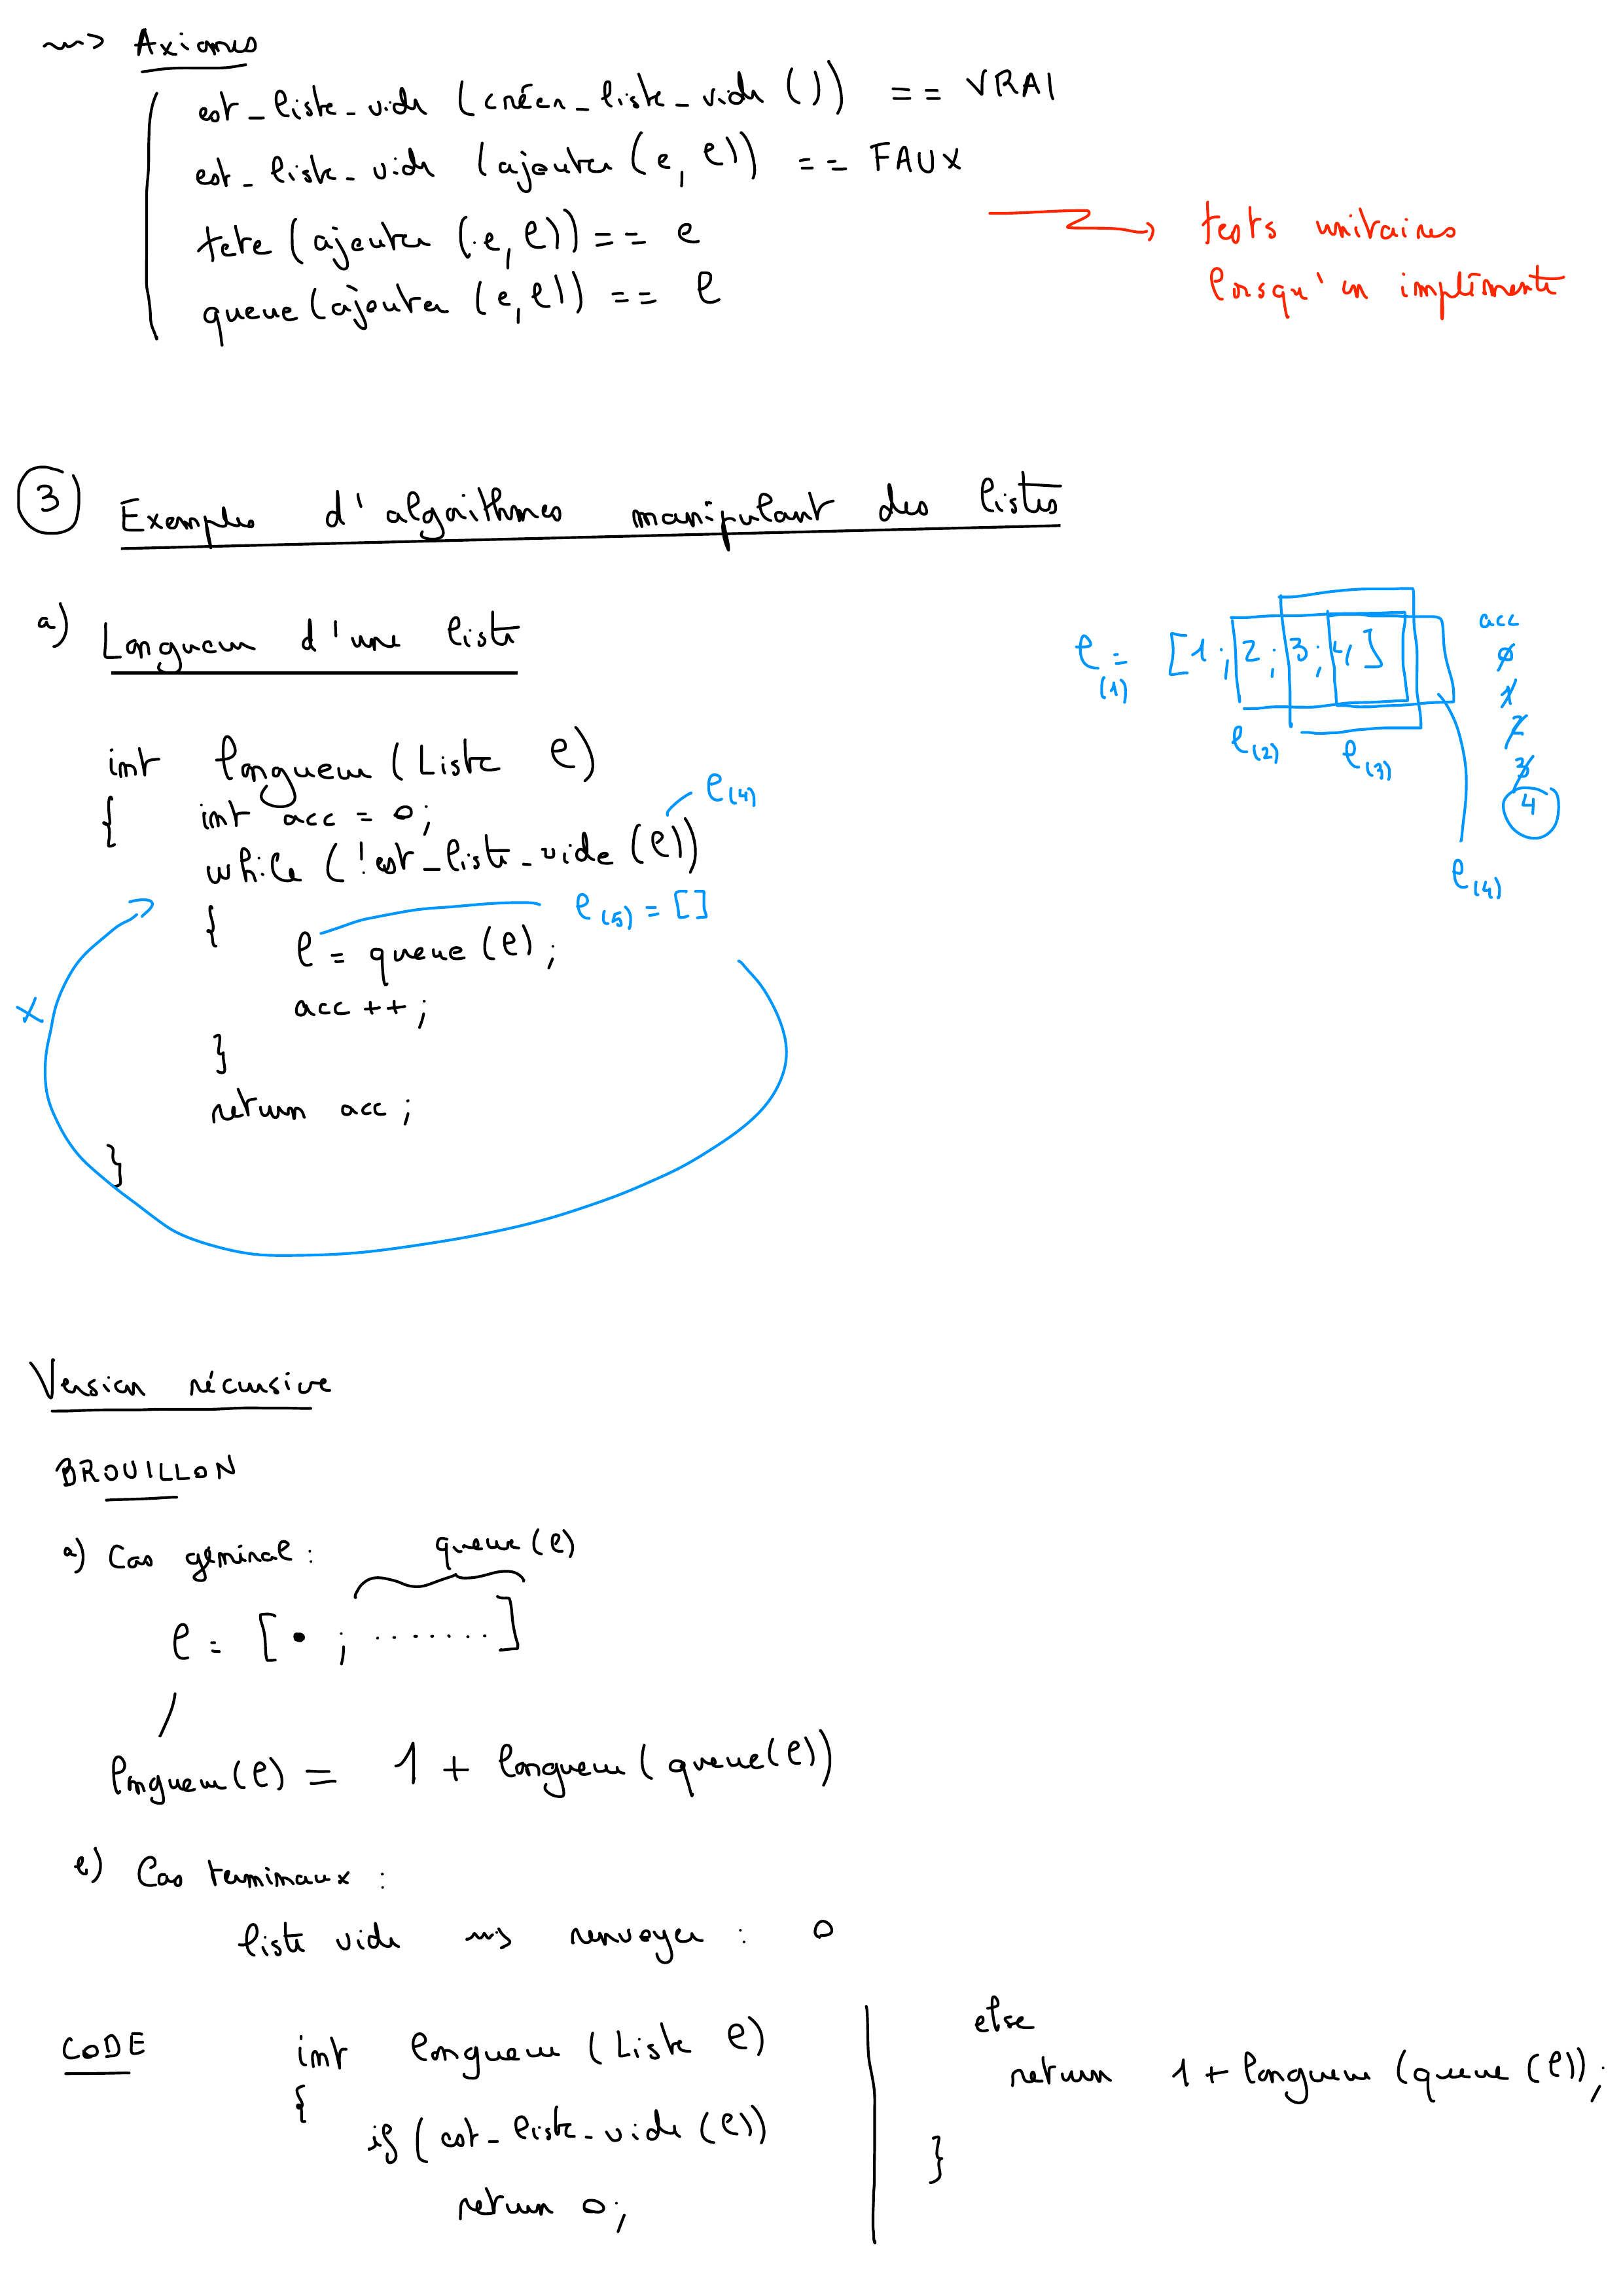 ~~> Axiomes
est_liste_vide (créer_liste_vide ()) == VRAI
est_liste_vide (ajouter (e, l)) == FAUX
tete (ajouter (e, l)) == e
queue (ajouter (e, l)) == l
tests unitaires
lorsqu'on implémente
3 Exemples d'algorithmes manipulant des listes
a) Longueur d'une liste
l(1) = [1; 2; 3; 4]
l(2) l(3)
l(4)
acc
0
1
2
3
4
int longueur (Liste l)
{ int acc = 0;
while (!est_liste_vide (l)) l(4)
{
l = queue (l); l(5) = []
acc ++;
}
return acc;
}
x
Version récursive
BROUILLON
a) Cas général : queue (l)
l = [• ; .......]
longueur (l) = 1 + longueur (queue (l))
b) Cas terminaux :
liste vide ~~> renvoyer : 0
CODE int longueur (Liste l)
{
if (est_liste_vide (l))
return 0;
else
return 1 + longueur (queue (l));
}